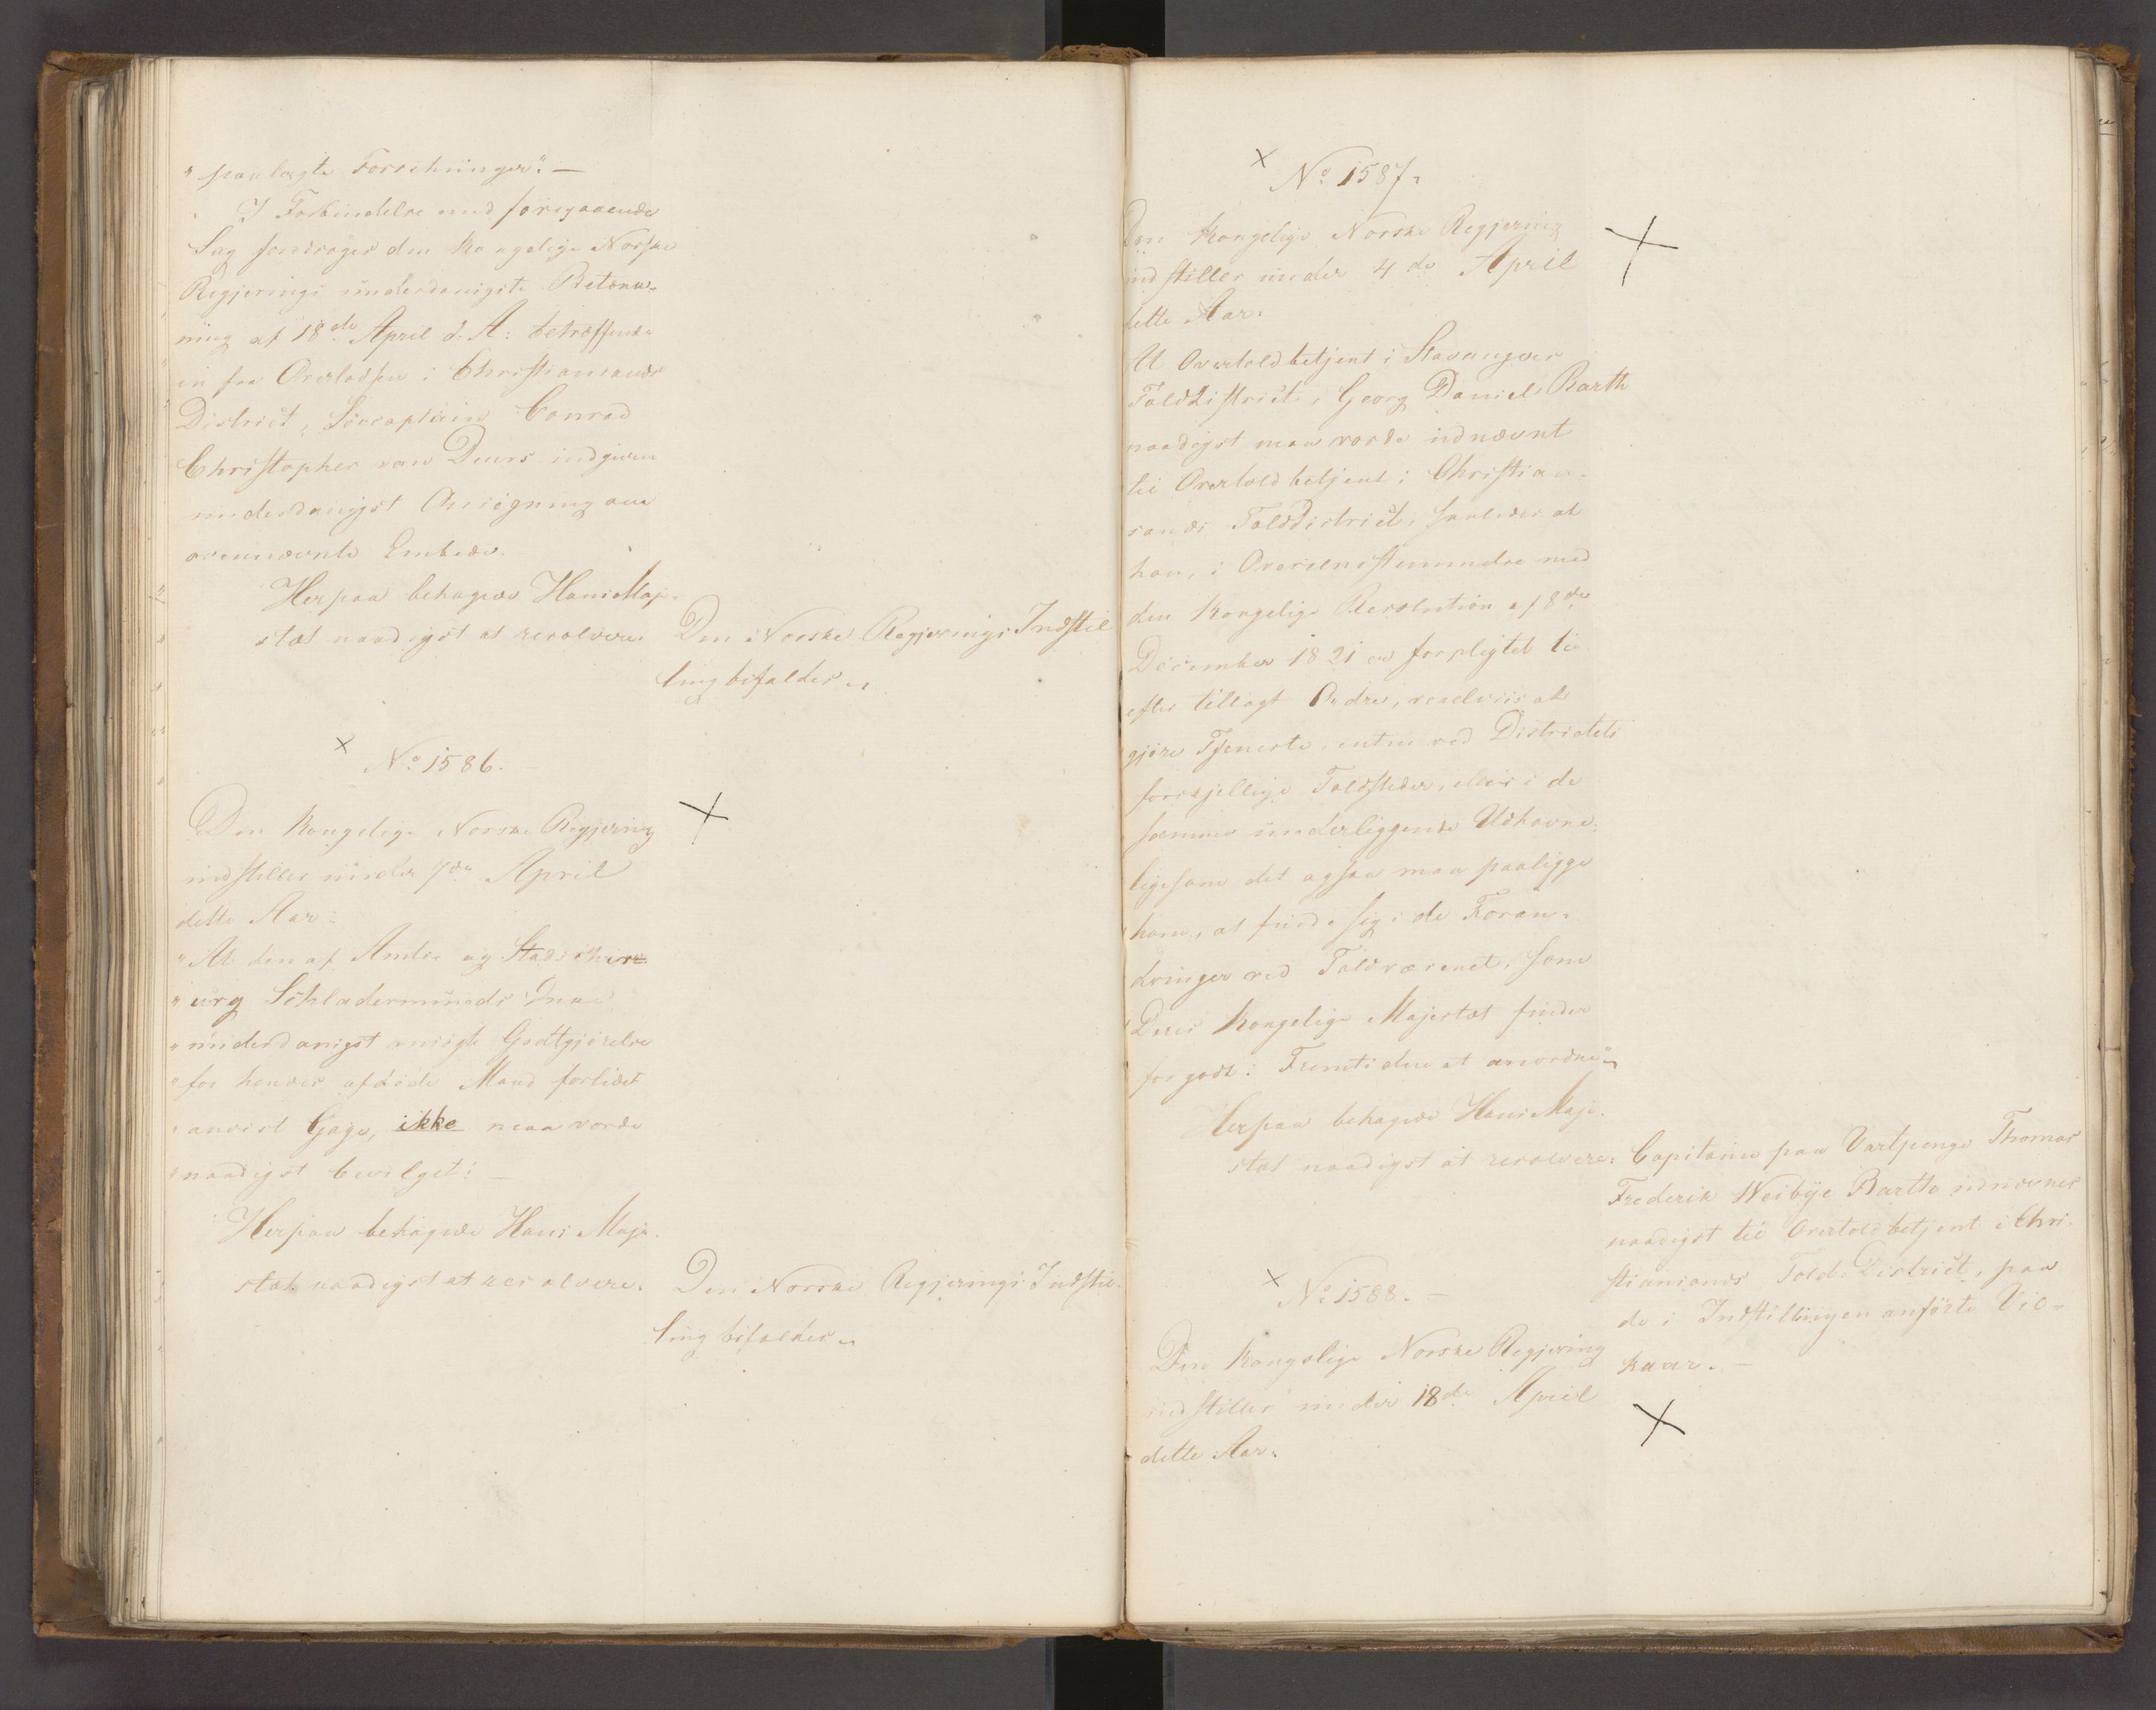 "paalagte Forretninger." —
I Forbindelse med foregaaende
Sag foredrages den Kongelige Norske
Regjerings underdanigste Betænk-
ning af 18de April d. A: betræffende
en fra Overlodsen i Christiansands
District, Søecaptain Conrad
Christopher van Deurs indgiven
underdanigst Ansøgning om
ovennævnte Embede.
Herpaa behagede Hans Maje-
stæt naadigst at resolvere.
Den Norske Regjerings Indstil-
ling bifaldes.
× No 1586.
Den Kongelige Norske Regjering
indstiller under 7de April
dette Aar:
"At den af Amts- og Stads Chir
"urg Schladermunds Enke
"underdanigst ansøgte Godtgjørelse
"for hendes afdøde Mand forlidet
"anvist Gage, ikke maa vorde
"naadigst bevilget." —
Herpaa behagede Hans Maje-
stæt naadigst at resolvere.
Den Norske Regjerings Indstil-
ling bifaldes.
× No 1587.
Den Kongelige Norske Regjering
indstiller under 4de April
dette Aar.
At Overtoldbetjent i Stavanger
Tolddistrict, Georg Daniel Barth
naadigst maa vorde udnævnt
til Overtoldbetjent i Christian-
sands Tolddistrict, saaledes at
han, i Overensstemmelse med
den Kongelige Resolution af 8de
December 1821 er forpligtet til
efter tillagt Ordre, vexelviis at
gjøre Tjeneste, enten ved Districtets
forskjellige Toldsteder, eller i de
samme underliggende Udhavne,
ligesom det ogsaa maa paaligge
ham, at finde sig i de Foran-
dringer ved Toldvæsenet, som
Deres Kongelige Majestæt finder
for godt i Fremtiden at anordne"
Herpaa behagede Hans Maje-
stæt naadigst at resolvere.
Capitaine paa Vartpenge Thomas
Frederik Weibye Barth udnævnes
naadigst til Overtoldbetjent i Chri-
stiansands Told-District, paa
de i Indstillingen anførte Vil-
kaar. —
× No 1588. —
Den Kongelige Norske Regjering
indstiller under 18de April
dette Aar.